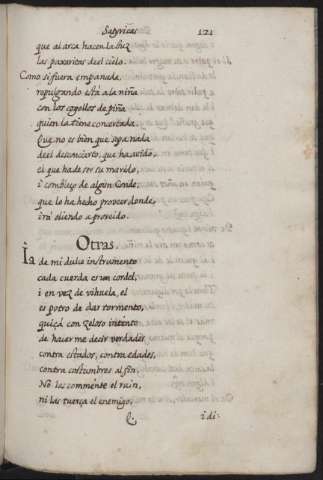 Satyricas 121
que al arca hacen la luz
los paxaritos del cielo.
Como si fuera empanada,
repulgando está a la niña
con los cogollos de piña
quien la tiene concertada.
Que no es bien que sepa nada
del desconcierto, que ha avido,
el que ha de ser su marido,
i complejo de algun Conde,
que lo ha hecho proveer donde,
irá oliendo a proveido.
Otras.
Ia de mi dulce instrumento
cada cuerda es un cordel,
i en vez de vihuela, el
es potro de dar tormento,
quiçá con zeloso intento
de hacerme decir verdades
contra estados, contra edades,
contra costumbres al fin.
No las comente el ruin,
ni las tuerça el enemigo,
i di